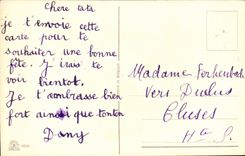 Chere tata
je t'envoie cette
carte pour te
souhaiter une bonne
fête. J'irai te
voir bientot.
Je t'embrasse bien
fort ainsi que tonton
Dany
Madame
Vers
Cluses
Hte S.